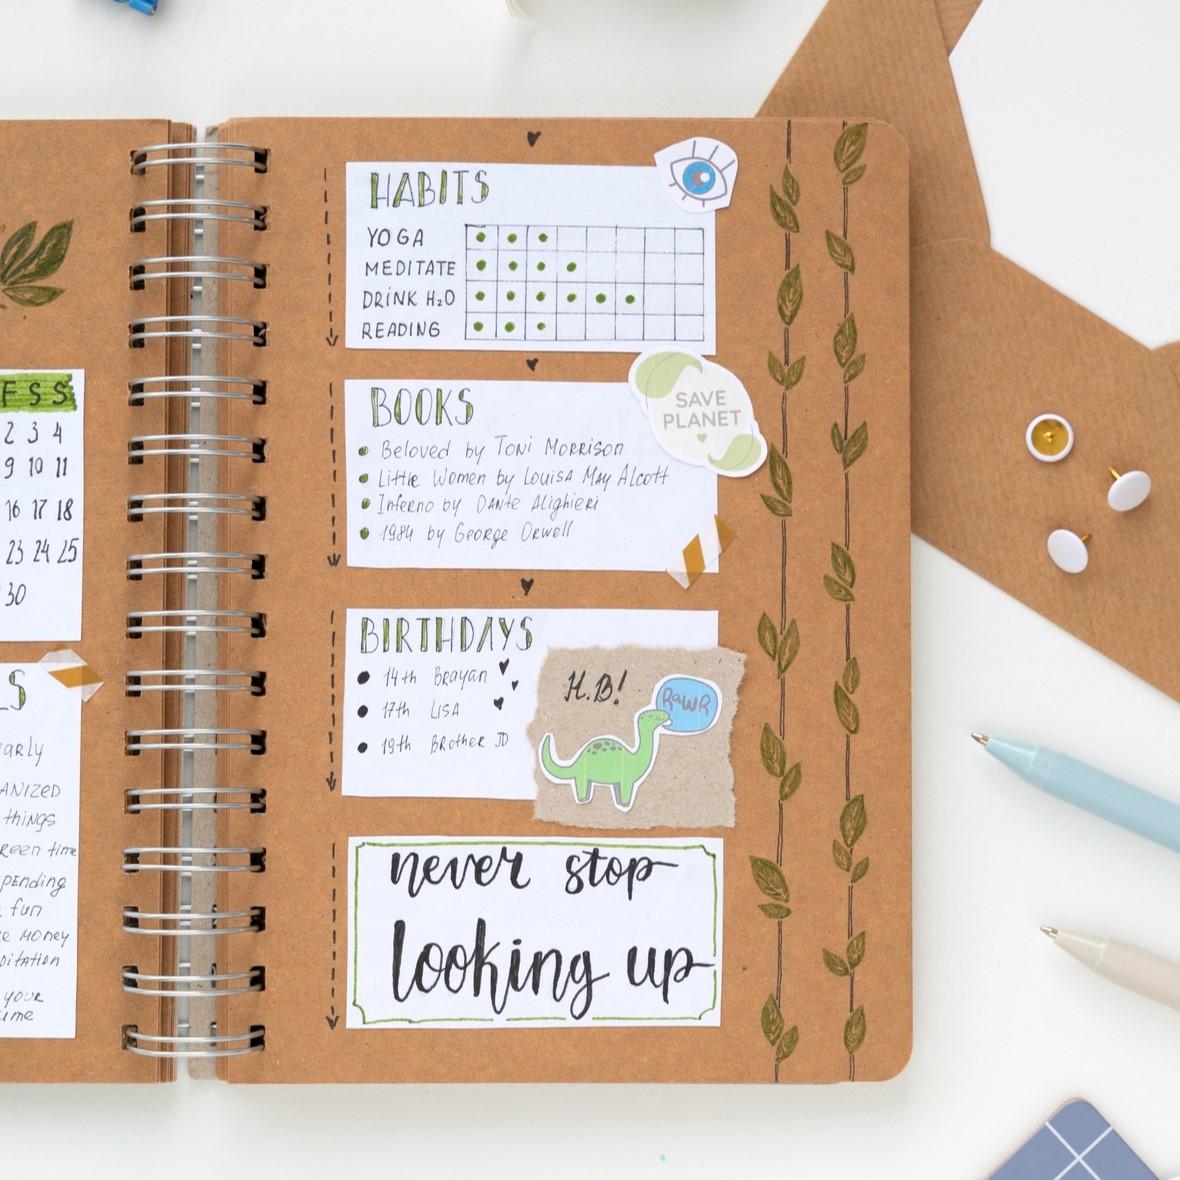 F S S
2 3 4
9 10 11
16 17 18
23 24 25
30
LS
early
ANIZED
things
reen time
pending
fun
MONEY
YOUR
HABITS
YOGA
MEDITATE
DRINK H₂O
READING
BOOKS
Beloved by Toni Morrison
Little Women by Louisa May Alcott
Inferno by Dante Alighieri
1984 by George Orwell
SAVE
PLANET
BIRTHDAYS
14th Brayan
17th Lisa
19th Brother JD
H.B!
RAWR
never stop
looking up